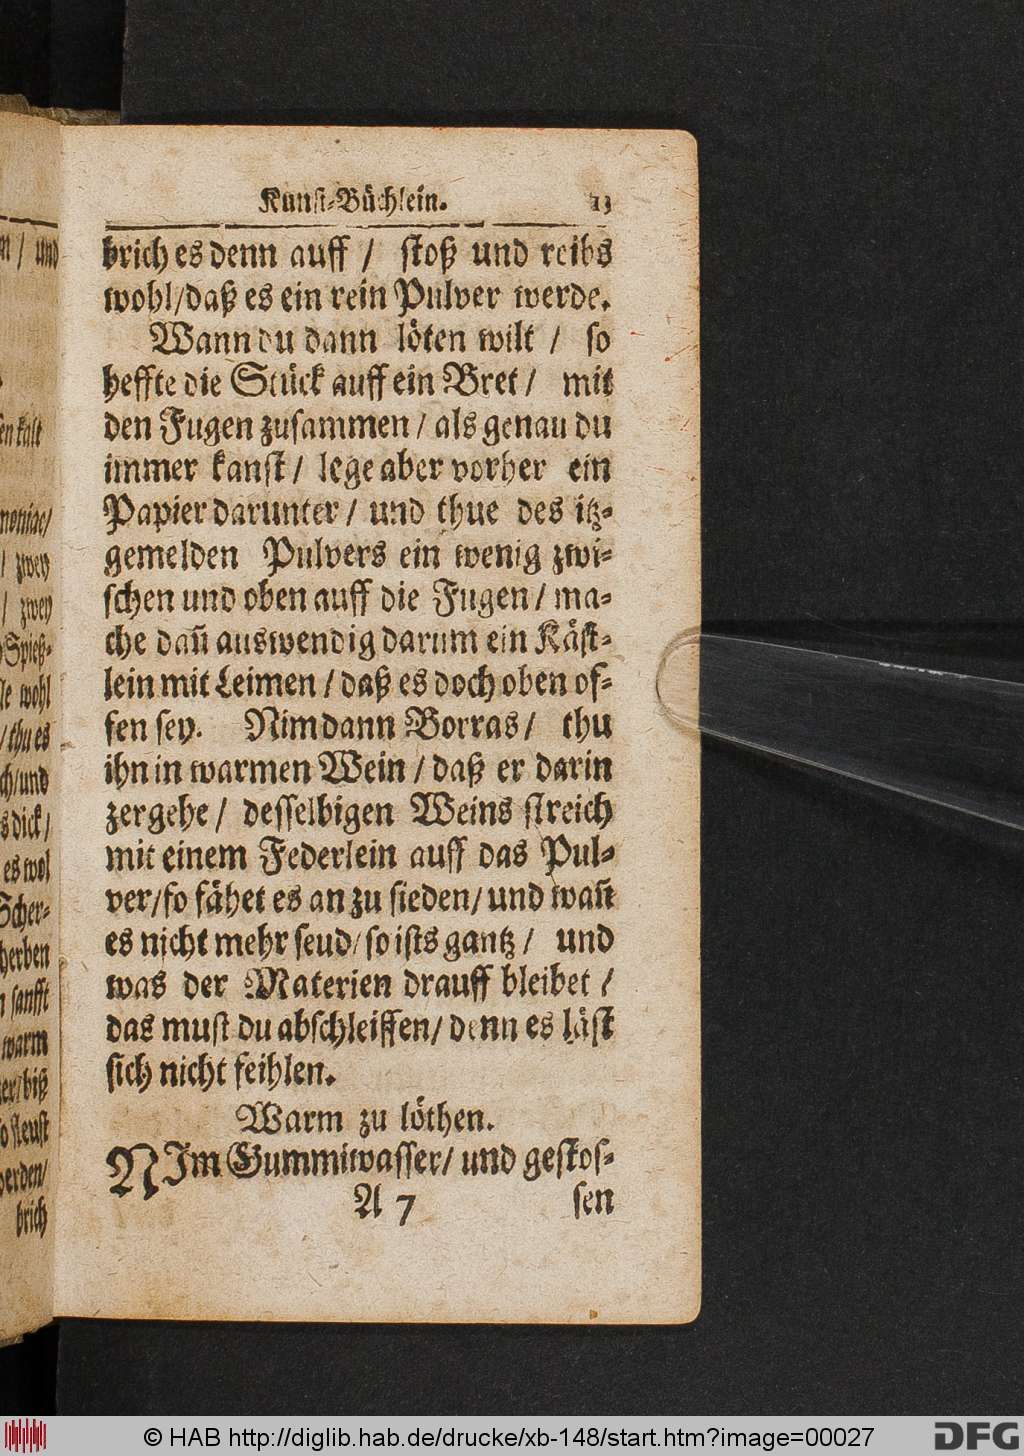 Kunst-Büchlein. 13
brich es denn auff / stoß und reibs
wohl/daß es ein rein Pulver werde.
Wann du dann löten wilt / so
heffte die Stück auff ein Bret / mit
den Fugen zusammen / als genau du
immer kanst / lege aber vorher ein
Papier darunter / und thue des itz-
gemelden Pulvers ein wenig zwi-
schen und oben auff die Fugen / ma-
che dañ auswendig darum ein Käst-
lein mit Leimen / daß es doch oben of-
fen sey. Nim dann Borras / thu
ihn in warmen Wein / daß er darin
zergehe / desselbigen Weins streich
mit einem Federlein auff das Pul-
ver/so fähet es an zu sieden/und wañ
es nicht mehr seud/so ists gantz / und
was der Materien drauff bleibet /
das must du abschleiffen/ denn es läst
sich nicht feihlen.
Warm zu löthen.
NIm Gummiwasser/ und gestos-
A 7 sen
/ und
kalt
noniac/
/ zwey
/ zwey
Spieß-
wohl
/thu es
ch/und
s dick/
es wol
Scher-
herben
sanfft
warm
er/biß
so steust
werden/
brich
© HAB http://diglib.hab.de/drucke/xb-148/start.htm?image=00027
DFG